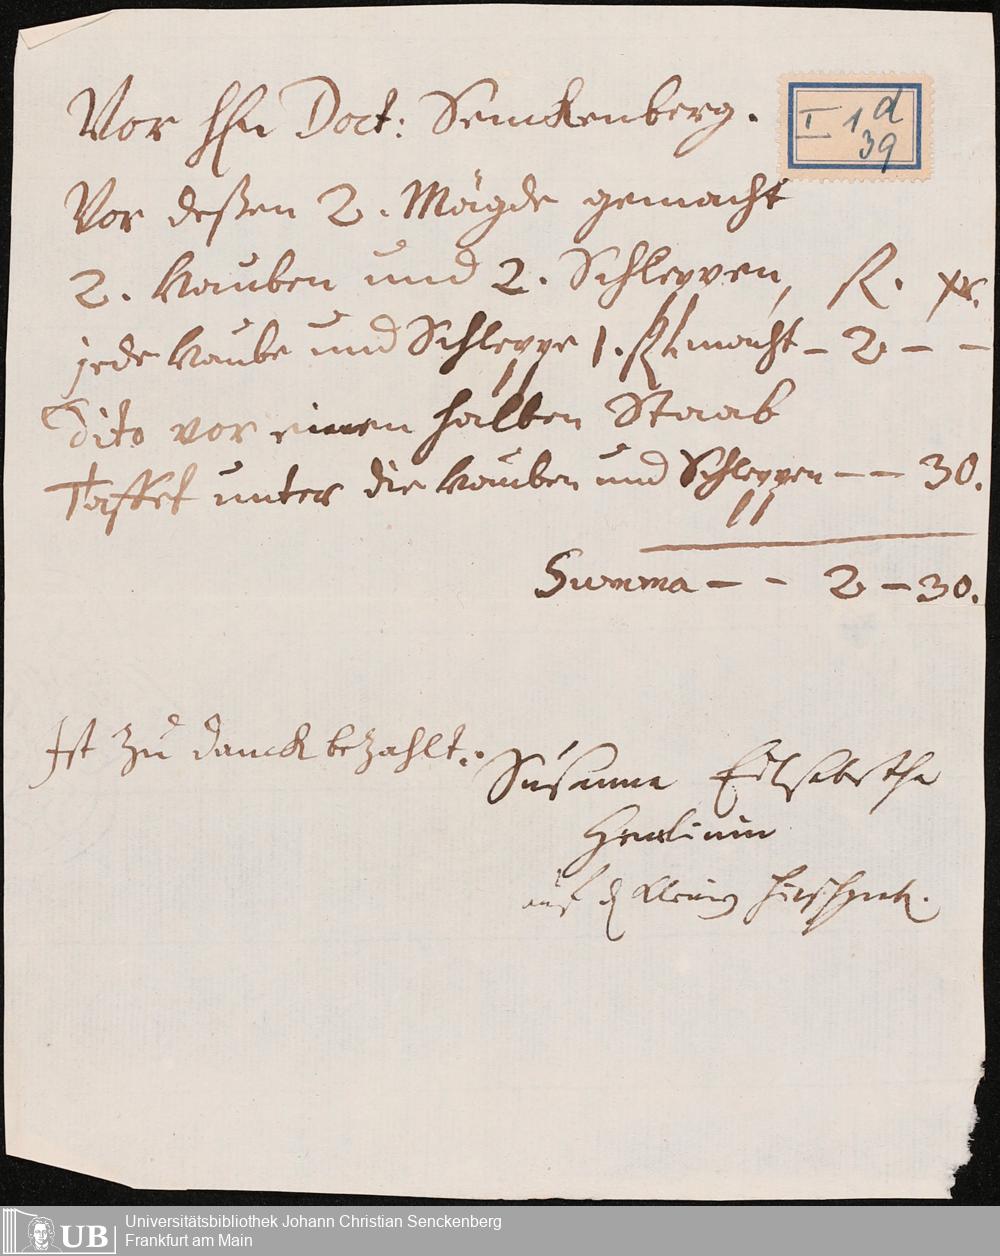 Vor HEn Doct: Senckenberg.
I 1 d
39
Vor deßen 2. Mägde gemacht
2. Hauben und 2. Schleppen, fl. xr.
jede Haube und Schleppe 1. fl. macht – 2 – –
Dito vor einen halben Staab
Taffet unter die Hauben und Schleppen – – 30.
Summa – – 2 – 30.
Ist zu danck bezahlt.
Susanna Elisabetha
auf
UB Universitätsbibliothek Johann Christian Senckenberg
Frankfurt am Main